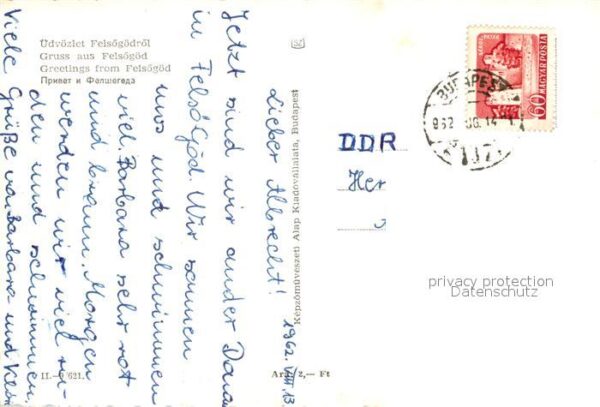 Üdvözlet Felsőgödről
Gruss aus Felsőgöd
Greetings from Felsőgöd
Привет и Фелшегеда
1962. VIII. 13.
Lieber Albrecht!
Jetzt sind wir an der Donau
in Felsőgöd. Wir sonnen
uns und schwimmen
viel. Barbara sehr rot
und braun. Morgen
werden wir viel ru-
dern und schwimmen.
Viele Grüße von Barbara und
Képzőművészeti Alap Kiadóvállalata, Budapest
DDR
Her
60 MAGYAR POSTA
BUDAPEST
privacy protection
Datenschutz
II.—9621.
Ára: 2,— Ft